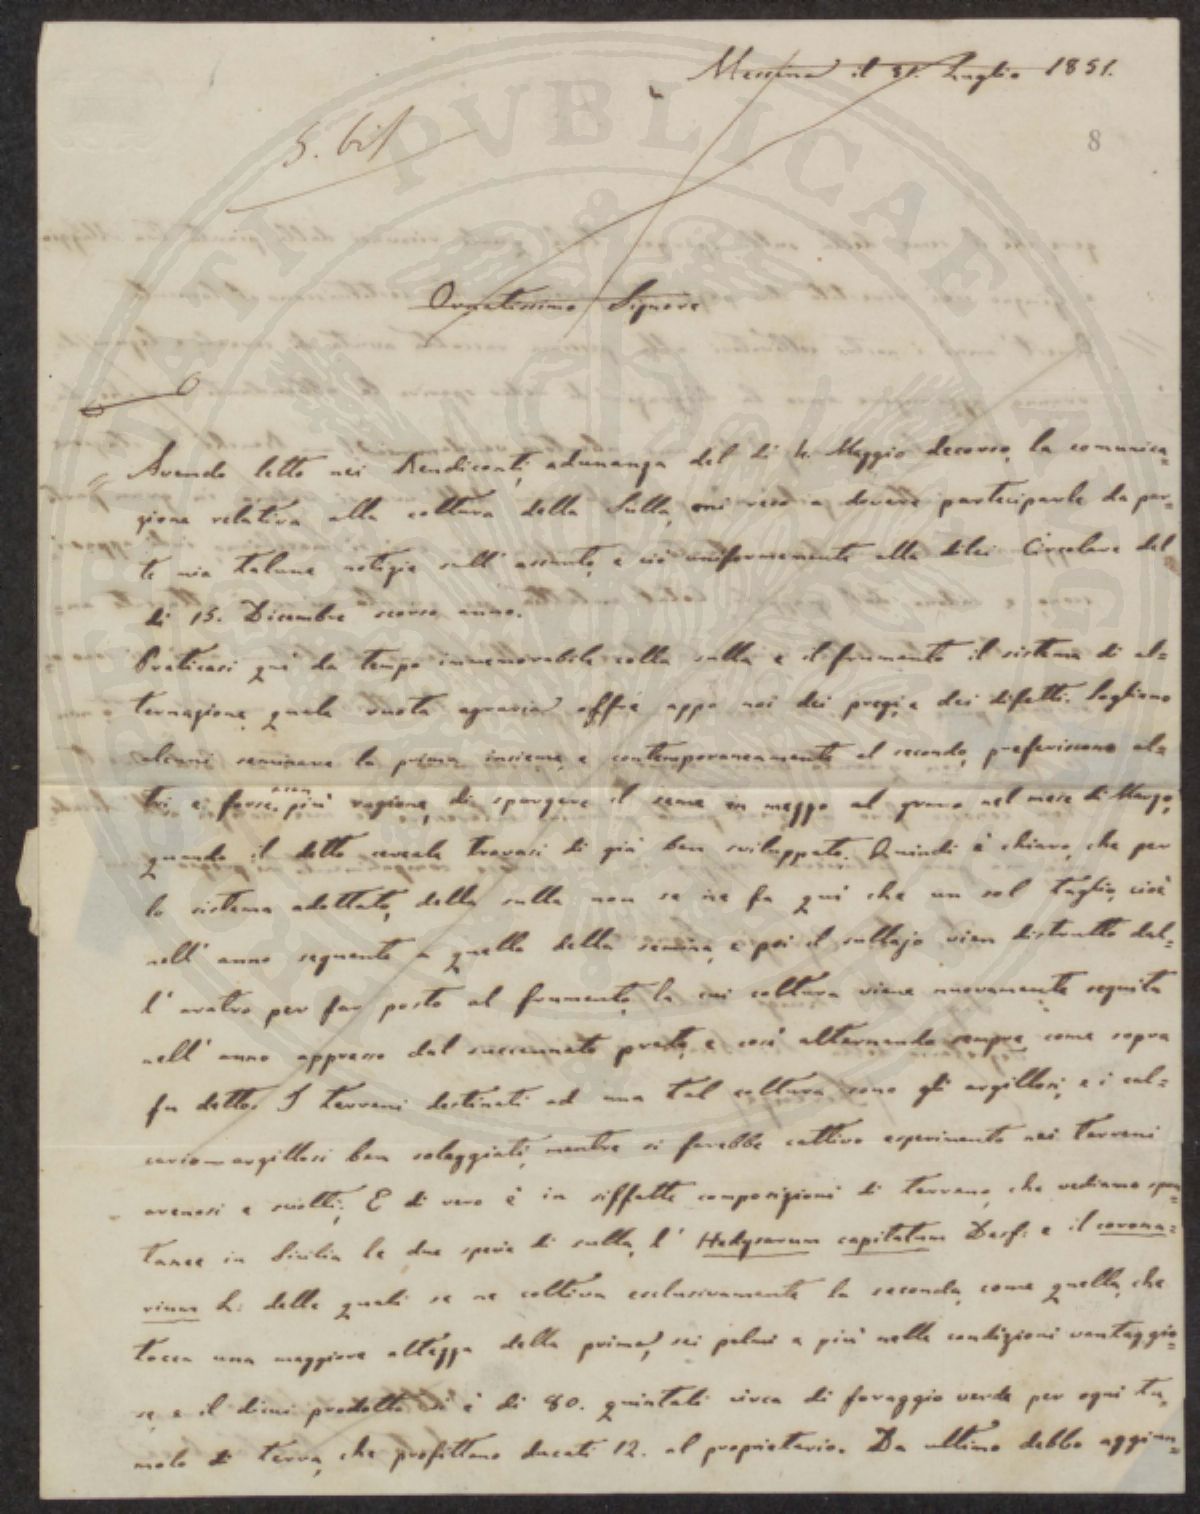 Messina il 31. Luglio 1851.
8
5. bis
Ornatissimo Signore
Avendo letto nei Rendiconti, adunanza del dì 4. Maggio decorso, la comunica=
zione relativa alla coltura della Sulla, mi reco a dovere parteciparle da par=
te mia talune notizie sull' assunto, e ciò uniformemente alla dilei Circolare del
dì 15. Dicembre scorso anno.
Praticasi quì da tempo immemorabile colla sulla e il frumento il sistema di al=
ternazione, quale ruota agraria offre appo noi dei pregi, e dei difetti. Sogliono
alcuni seminare la prima insieme, e contemporaneamente al secondo, preferiscono al=
tri, e forse a con più ragione, di spargere il seme in mezzo al grano nel mese di Marzo,
quando il detto cereale trovasi di già ben sviluppato. Quindi è chiaro, che per
lo sistema adottato, della sulla non se ne fa quì che un sol taglio, cioè
nell' anno seguente a quello della semina, e poi il sullajo vien distrutto dal=
l' aratro per far posto al frumento, la cui coltura viene nuovamente seguita
nell' anno appresso dal succennato prato, e così alternando sempre come sopra
fu detto. I terreni destinati ad una tal coltura sono gli argillosi, e i cal=
cario=argillosi ben soleggiati, mentre si farebbe cattivo esperimento nei terreni
arenosi e sciolti. E di vero è in siffatte composizioni di terreno, che vediamo spon=
tanee in Sicilia le due specie di sulla, l' Hedysarum capitatum Desf: e il corona=
rium L: delle quali se ne coltiva esclusivamente la seconda, come quella, che
tocca una maggiore altezza della prima, sei palmi e più nelle condizioni vantaggio=
se, e il dicui prodotto si è di 80. quintali circa di foraggio verde per ogni tu=
molo di terra, che profittano ducati 12. al proprietario. Da ultimo debbo aggiun=